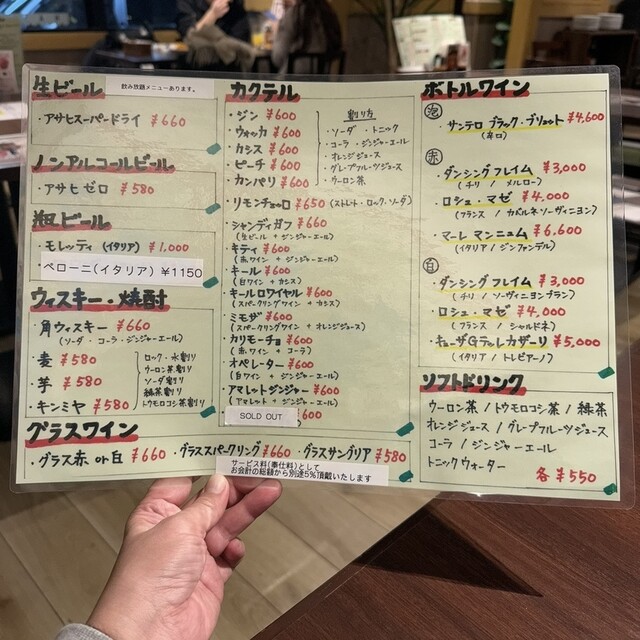 生ビール
飲み放題メニューあります。
・アサヒスーパードライ ¥660
ノンアルコールビール
・アサヒゼロ ¥580
瓶ビール
・モレッティ (イタリア) ¥1,000
ペローニ(イタリア) ¥1150
ウィスキー・焼酎
・角ウィスキー ¥660
(ソーダ・コーラ・ジンジャーエール)
・麦 ¥580
・芋 ¥580
・キンミヤ ¥580
ロック・水割り
ウーロン茶割り
ソーダ割り
緑茶割り
トウモロコシ茶割り
カクテル
・ジン ¥600
・ウォッカ ¥600
・カシス ¥600
・ピーチ ¥600
・カンパリ ¥600
割り方
・ソーダ ・トニック
・コーラ ・ジンジャーエール
・オレンジジュース
・グレープフルーツジュース
・ウーロン茶
・リモンチェッロ ¥650 (ストレート・ロック・ソーダ)
・シャンディガフ ¥660
(生ビール + ジンジャーエール)
・キティ ¥600
(赤ワイン + ジンジャーエール)
・キール ¥600
(白ワイン + カシス)
・キールロワイヤル ¥600
(スパークリングワイン + カシス)
・ミモザ ¥600
(スパークリングワイン + オレンジジュース)
・カリモーチョ ¥600
(赤ワイン + コーラ)
・オペレーター ¥600
(白ワイン + ジンジャーエール)
・アマレットジンジャー ¥600
(アマレット + ジンジャーエール)
SOLD OUT
600
ボトルワイン
泡
・サンテロ ブラック・ブリュット ¥4,600
(辛口)
赤
・ダンシングフレイム ¥3,000
(チリ / メルロー)
・ロシュ・マゼ ¥4,000
(フランス / カベルネソーヴィニヨン)
・マーレ マンニュム ¥6,600
(イタリア / ジンファンデル)
白
・ダンシングフレイム ¥3,000
(チリ / ソーヴィニヨンブラン)
・ロシュ・マゼ ¥4,000
(フランス / シャルドネ)
・キューザGデルカザーリ ¥5,000
(イタリア / トレビアーノ)
ソフトドリンク
ウーロン茶 / トウモロコシ茶 / 緑茶
オレンジジュース / グレープフルーツジュース
コーラ / ジンジャーエール
トニックウォーター
各 ¥550
グラスワイン
・グラス赤 or 白 ¥660 ・グラススパークリング ¥660 ・グラスサングリア ¥580
サービス料(奉仕料)として
お会計の総額から別途5%頂戴いたします